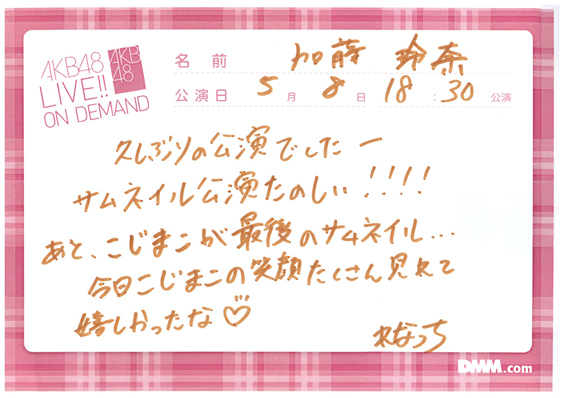 AKB48
LIVE!!
ON DEMAND
AKB
48
名前 加藤 玲奈
公演日 5月 8日 18:30 公演
久しぶりの公演でしたー
サムネイル公演たのしい!!!!
あと、こじまこが最後のサムネイル...
今日こじまこの笑顔たくさん見れて
嬉しかったな♡
れなっち
DMM.com